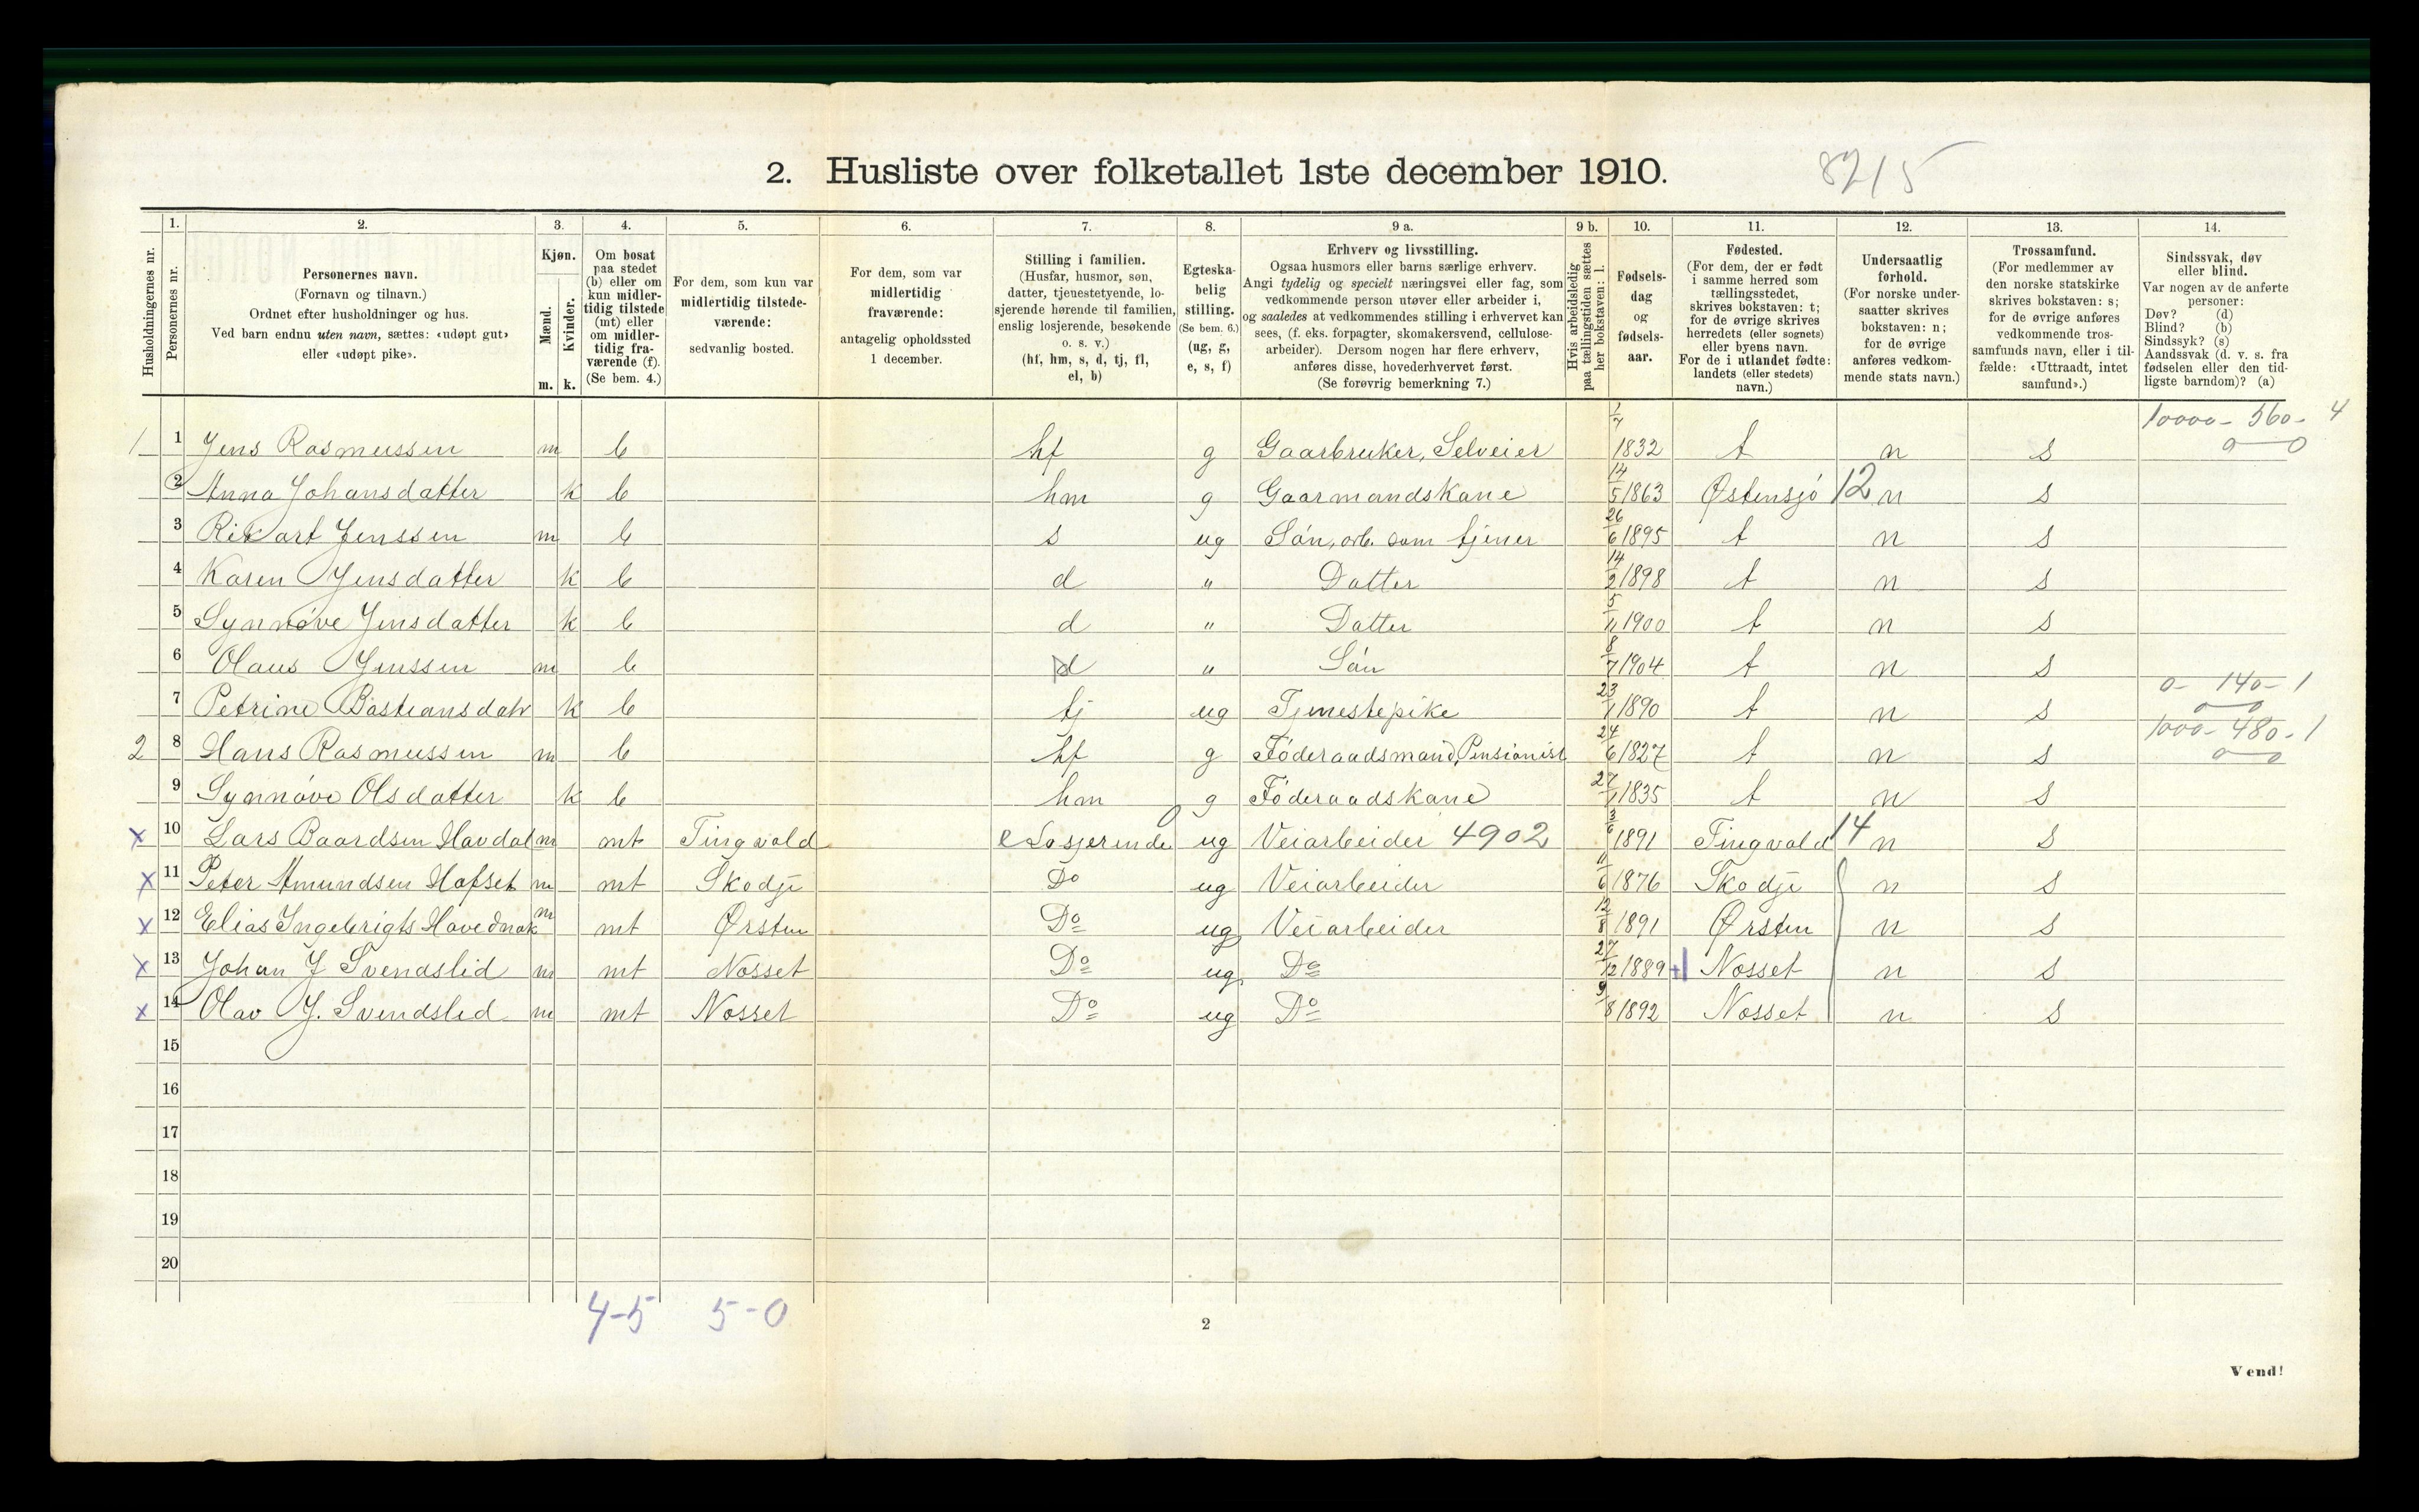 2. Husliste over folketallet 1ste december 1910. 82/5
Husholdningernes nr.
1. Personernes nr.
2. Personernes navn. (Fornavn og tilnavn.) Ordnet efter husholdninger og hus. Ved barn endnu uten navn, sættes: «udøpt gut» eller «udøpt pike».
3. Kjøn. Mænd. m. Kvinder. k.
4. Om bosat paa stedet (b) eller om kun midlertidig tilstede (mt) eller om midlertidig fraværende (f). (Se bem. 4.)
5. For dem, som kun var midlertidig tilstedeværende: sedvanlig bosted.
6. For dem, som var midlertidig fraværende: antagelig opholdssted 1 december.
7. Stilling i familien. (Husfar, husmor, søn, datter, tjenestetyende, losjerende hørende til familien, enslig losjerende, besøkende o. s. v.) (hf, hm, s, d, tj, fl, el, b)
8. Egteskabelig stilling. (Se bem. 6.) (ug, g, e, s, f)
9 a. Erhverv og livsstilling. Ogsaa husmors eller barns særlige erhverv. Angi tydelig og specielt næringsvei eller fag, som vedkommende person utøver eller arbeider i, og saaledes at vedkommendes stilling i erhvervet kan sees, (f. eks. forpagter, skomakersvend, cellulosearbeider). Dersom nogen har flere erhverv, anføres disse, hovederhvervet først. (Se forøvrig bemerkning 7.)
9 b. Hvis arbeidsledig paa tællingstiden sættes her bokstaven: l.
10. Fødselsdag og fødselsaar.
11. Fødested. (For dem, der er født i samme herred som tællingsstedet, skrives bokstaven: t; for de øvrige skrives herredets (eller sognets) eller byens navn. For de i utlandet fødte: landets (eller stedets) navn.)
12. Undersaatlig forhold. (For norske undersaatter skrives bokstaven: n; for de øvrige anføres vedkommende stats navn.)
13. Trossamfund. (For medlemmer av den norske statskirke skrives bokstaven: s; for de øvrige anføres vedkommende trossamfunds navn, eller i tilfælde: «Uttraadt, intet samfund».)
14. Sindssvak, døv eller blind. Var nogen av de anførte personer: Døv? (d) Blind? (b) Sindssyk? (s) Aandssvak (d. v. s. fra fødselen eller den tidligste barndom)? (a)
1 1 Jens Rasmussen m b hf g Gaarbruker, Selveier 1/7 1832 t n s 10000 - 560 - 4 0 0
2 Anna Johansdatter k b hm g Gaarmandskane 14/5 1863 Østensjö 12 n s
3 Rikart Jenssen m b s ug Sön, arb. som tjener 26/6 1895 t n s
4 Karen Jensdatter k b d " Datter 14/2 1898 t n s
5 Synnöve Jensdatter k b d " Datter 5/11 1900 t n s
6 Olaus Jenssen m b d " Sön 8/7 1904 t n s
7 Petrine Bastiansdatr k b tj ug Tjenestepike 23/1 1890 t n s 0 - 140 - 1 0 0
2 8 Hans Rasmussen m b hf g Föderaadsmand, Pensionist 24/6 1827 t n s 1000 - 480 - 1 0 0
9 Synnöve Olsdatter k b hm g Föderaadskane 27/1 1835 t n s
x 10 Lars Baardsen Havdal m mt Tingvold e Losjerende ug Veiarbeider 4902 3/6 1891 Tingvold 14 n s
x 11 Peter Amundsen Hafset m mt Skodje Do ug Veiarbeider 11/6 1876 Skodje n s
x 12 Elias Ingebrigts Havednak m mt Ørsten Do ug Veiarbeider 12/8 1891 Ørsten n s
x 13 Johan J Svendslid m mt Nosset Do ug Do 27/12 1889 Nosset n s
x 14 Olav J. Svendslid m mt Nosset Do ug Do 9/8 1892 Nosset n s
15
16
17
18
19
20
4-5 5-0
2
Vend!